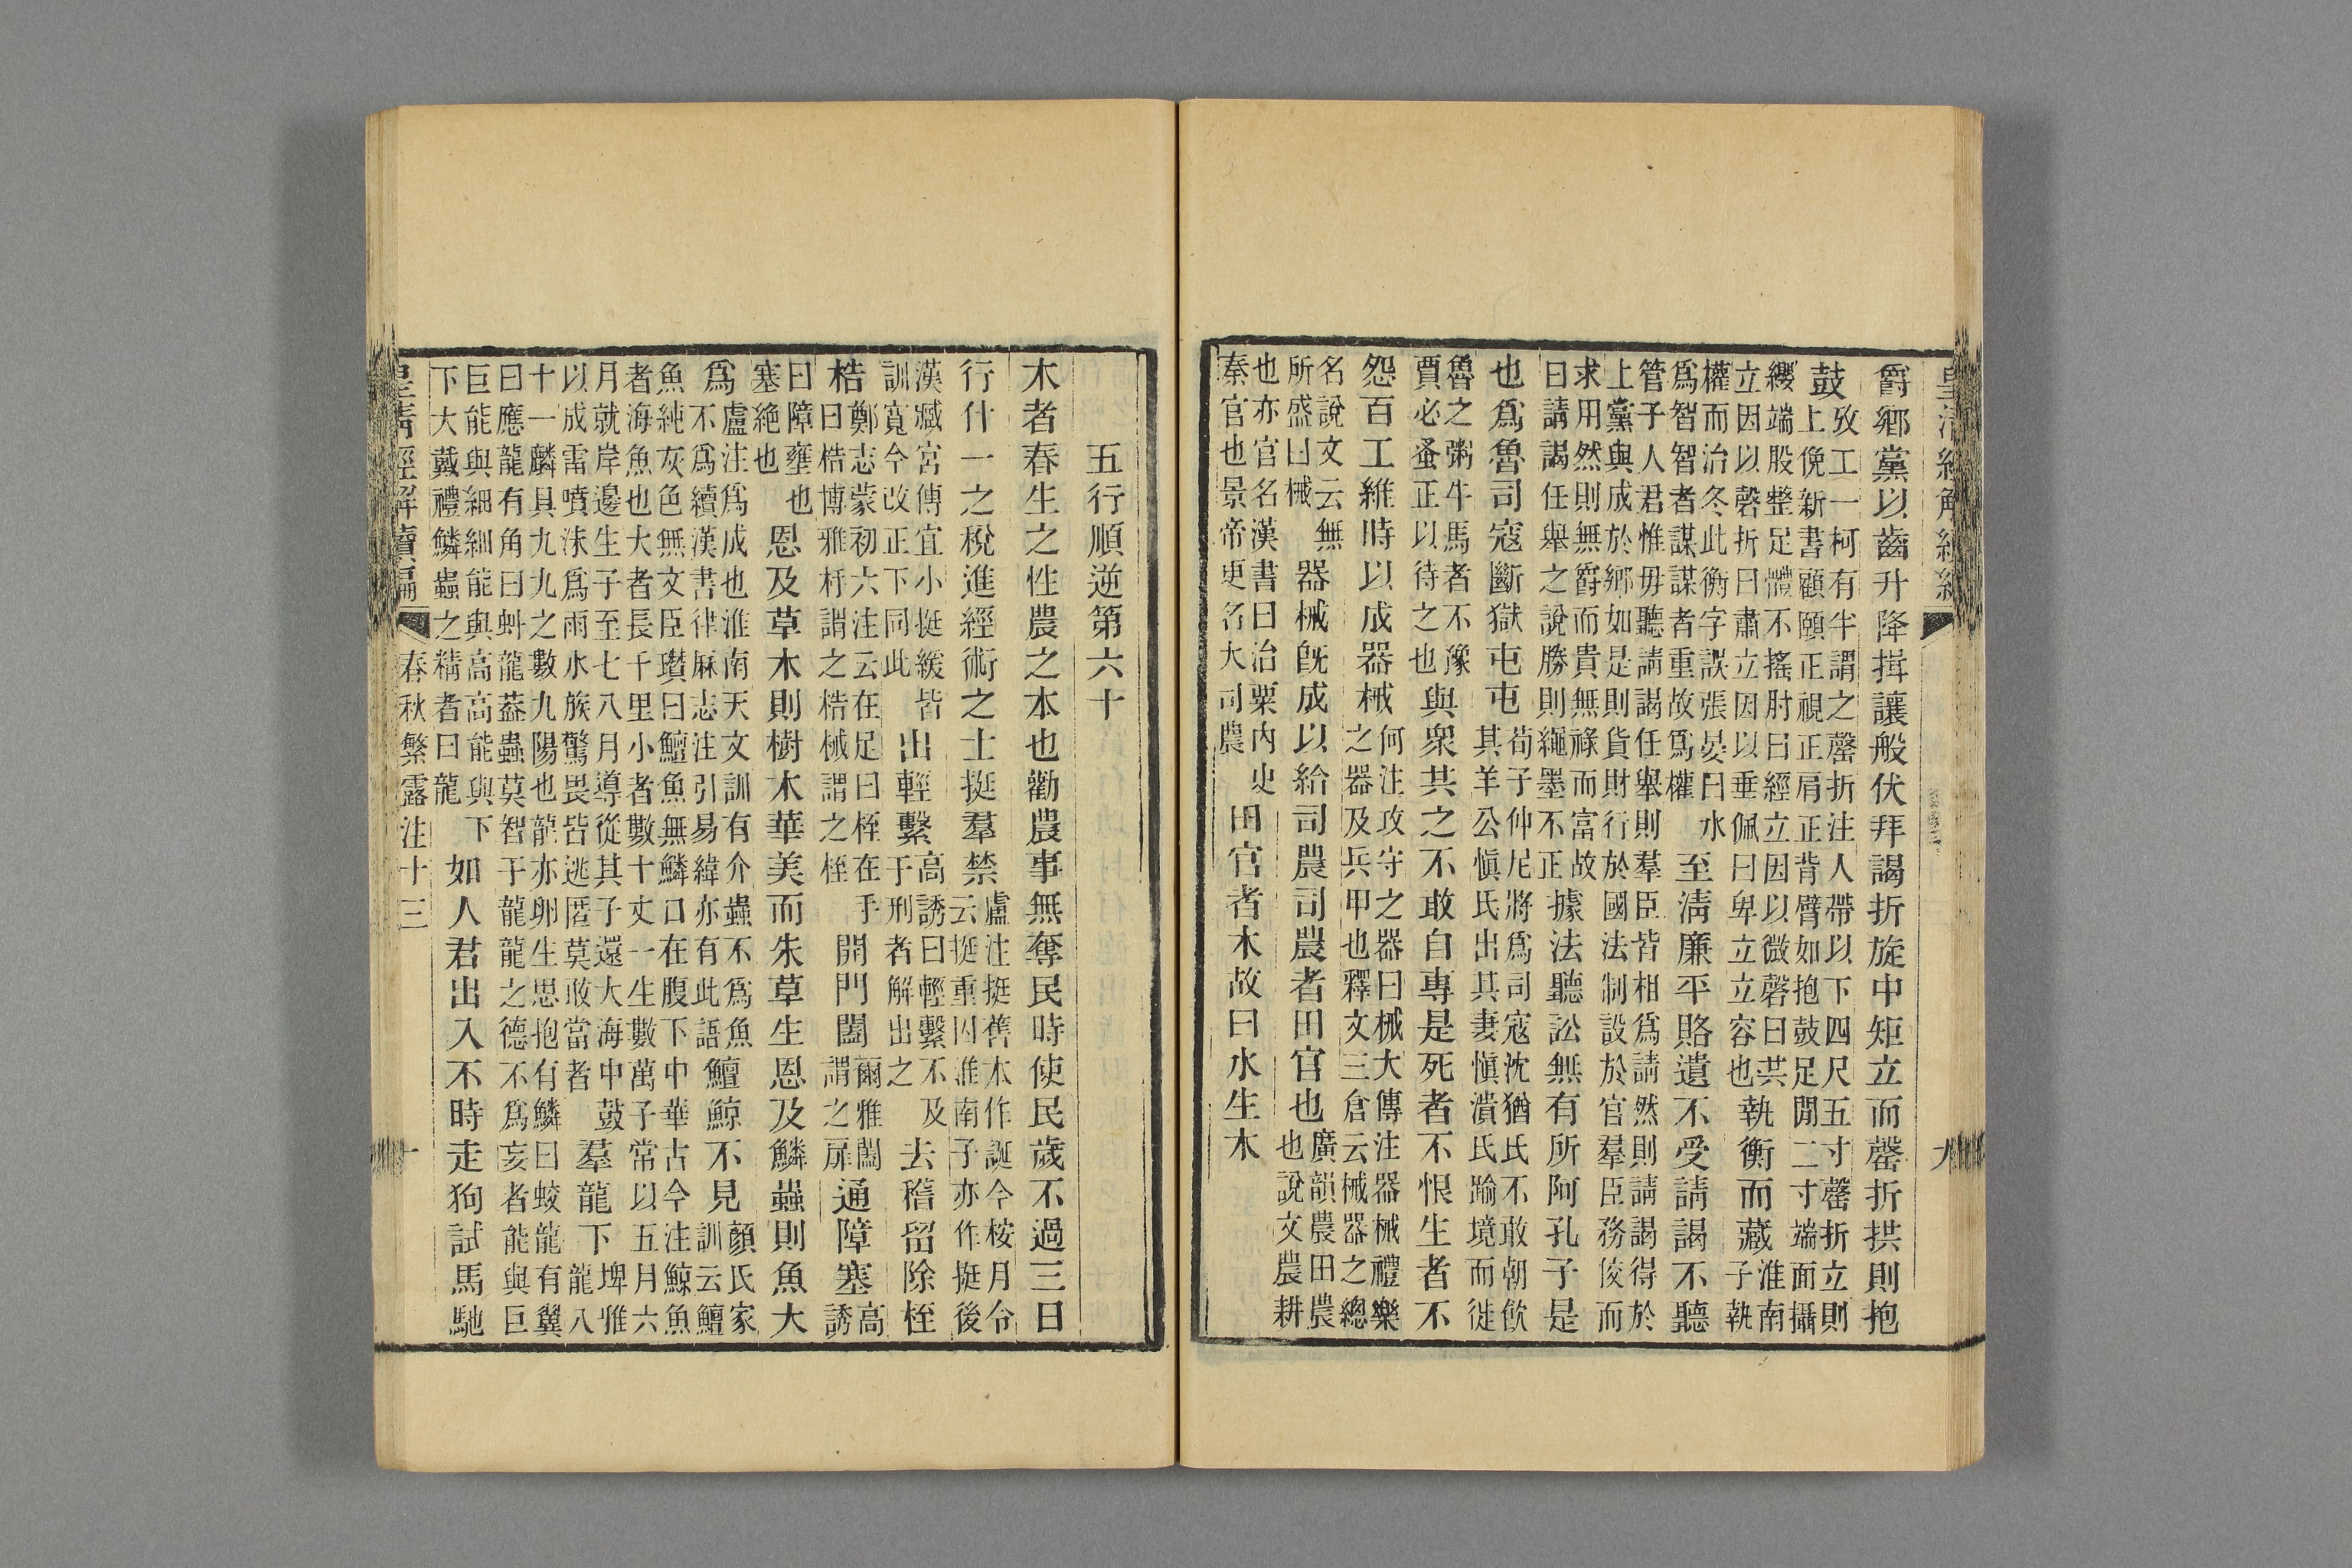 皇淸經解續編
九
爵鄉黨以齒升降揖讓般伏拜謁折旋中矩立而罄折拱則抱
鼓攷工一柯有半謂之罄折注人帶以下四尺五寸罄折立則上俛新書顧頤正視正肩正背臂如抱鼓足閒二寸端面攝
纓端股整足體不搖肘曰經立因以微磬曰共立因以磬折曰肅立因以垂佩曰卑立立容也執衡而藏淮南子執
權而治冬此衡字誤張晏曰水爲智智者謀謀者重故爲權至淸廉平賂遺不受請謁不聽
管子人君惟毋聽請謁任舉則羣臣皆相爲請然則請謁得於上黨與成於鄉如是則貨財行於國法制設於官羣臣務佼而
求用然則無爵而貴無祿而富故曰請謁任舉之說勝則繩墨不正據法聽訟無有所阿孔子是
也爲魯司寇斷獄屯屯荀子仲尼將爲司寇沈猶氏不敢朝飮其羊公愼氏出其妻愼潰氏踰境而徙
魯之粥牛馬者不豫賈必蚤正以待之也與衆共之不敢自專是死者不恨生者不
怨百工維時以成器械何注攻守之器曰械大傳注器械禮樂之器及兵甲也釋文三倉云械器之總
名說文云無所盛曰械器械旣成以給司農司農者田官也廣韻農田農也說文農耕
也亦官名漢書曰治粟內史秦官也景帝更名大司農田官者木故曰水生木
五行順逆第六十
木者春生之性農之本也勸農事無奪民時使民歲不過三日
行什一之稅進經術之士挺羣禁盧注挺舊本作誕今桉月令云挺重囚淮南子亦作挺後
漢臧宮傳宜小挺緩皆訓寬今改正下同此出輕繫高誘曰輕繫不及于刑者解出之去稽留除桎
梏鄭志蒙初六注云在足曰桎在手曰梏博雅杽謂之梏械謂之桎開門闔爾雅闔謂之扉通障塞高誘
曰障壅也塞絕也恩及草木則樹木華美而朱草生恩及鱗蟲則魚大
爲盧注爲成也淮南天文訓有介蟲不爲魚不爲續漢書律麻志注引易緯亦有此語鱣鯨不見顏氏家訓云鱣
魚純灰色無文臣瓚曰鱣魚無鱗口在腹下中華古今注鯨魚者海魚也大者長千里小者數十丈一生數萬子常以五月六
月就岸邊生子至七八月導從其子還大海中鼓以成雷噴沫爲雨水族驚畏皆逃匿莫敢當者羣龍下埤雅龍八
十一鱗具九九之數九陽也龍亦卵生思抱有鱗曰蛟龍有翼曰應龍有角曰虯龍蓋蟲莫智于龍龍之德不爲妄者能與巨
巨能與細細能與高高能與下下大戴禮鱗蟲之精者曰龍如人君出入不時走狗試馬馳
皇淸經解續編 春秋繁露注十三
十